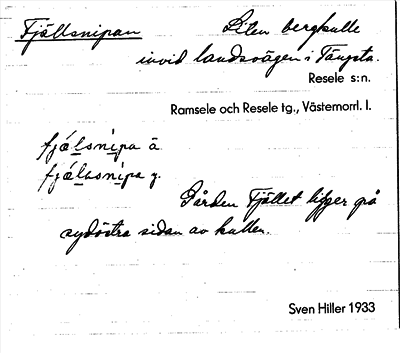 Fjällsnipan Liten bergkulle
invid landsvägen i Tängsta.
Resele s:n.
Ramsele och Resele tg., Västernorrl. l.
fjælsnipa ä.
fjælasnipa y.
Gården Fjället ligger på
sydöstra sidan av kullen.
Sven Hiller 1933